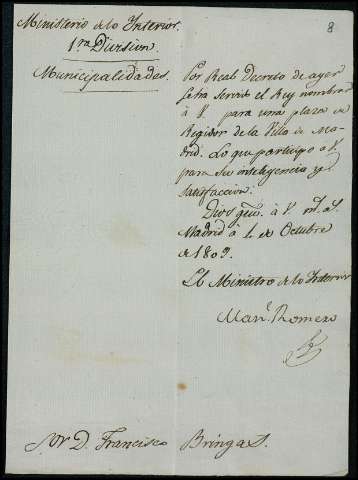 Ministerio de lo Interior.
1ra Division.
Municipalidades.
8
Por Real Decreto de ayer
se ha servido el Rey nombrar
à V. para una plaza de
Regidor de la Villa de Ma-
drid. Lo que participo à V.
para su inteligencia y
satisfaccion.
Dios gue. à V. ms. as.
Madrid à 1. de Octubre
de 1809.
El Ministro de lo Interior
Manl. Romero
Sor. D. Francisco Bringas.